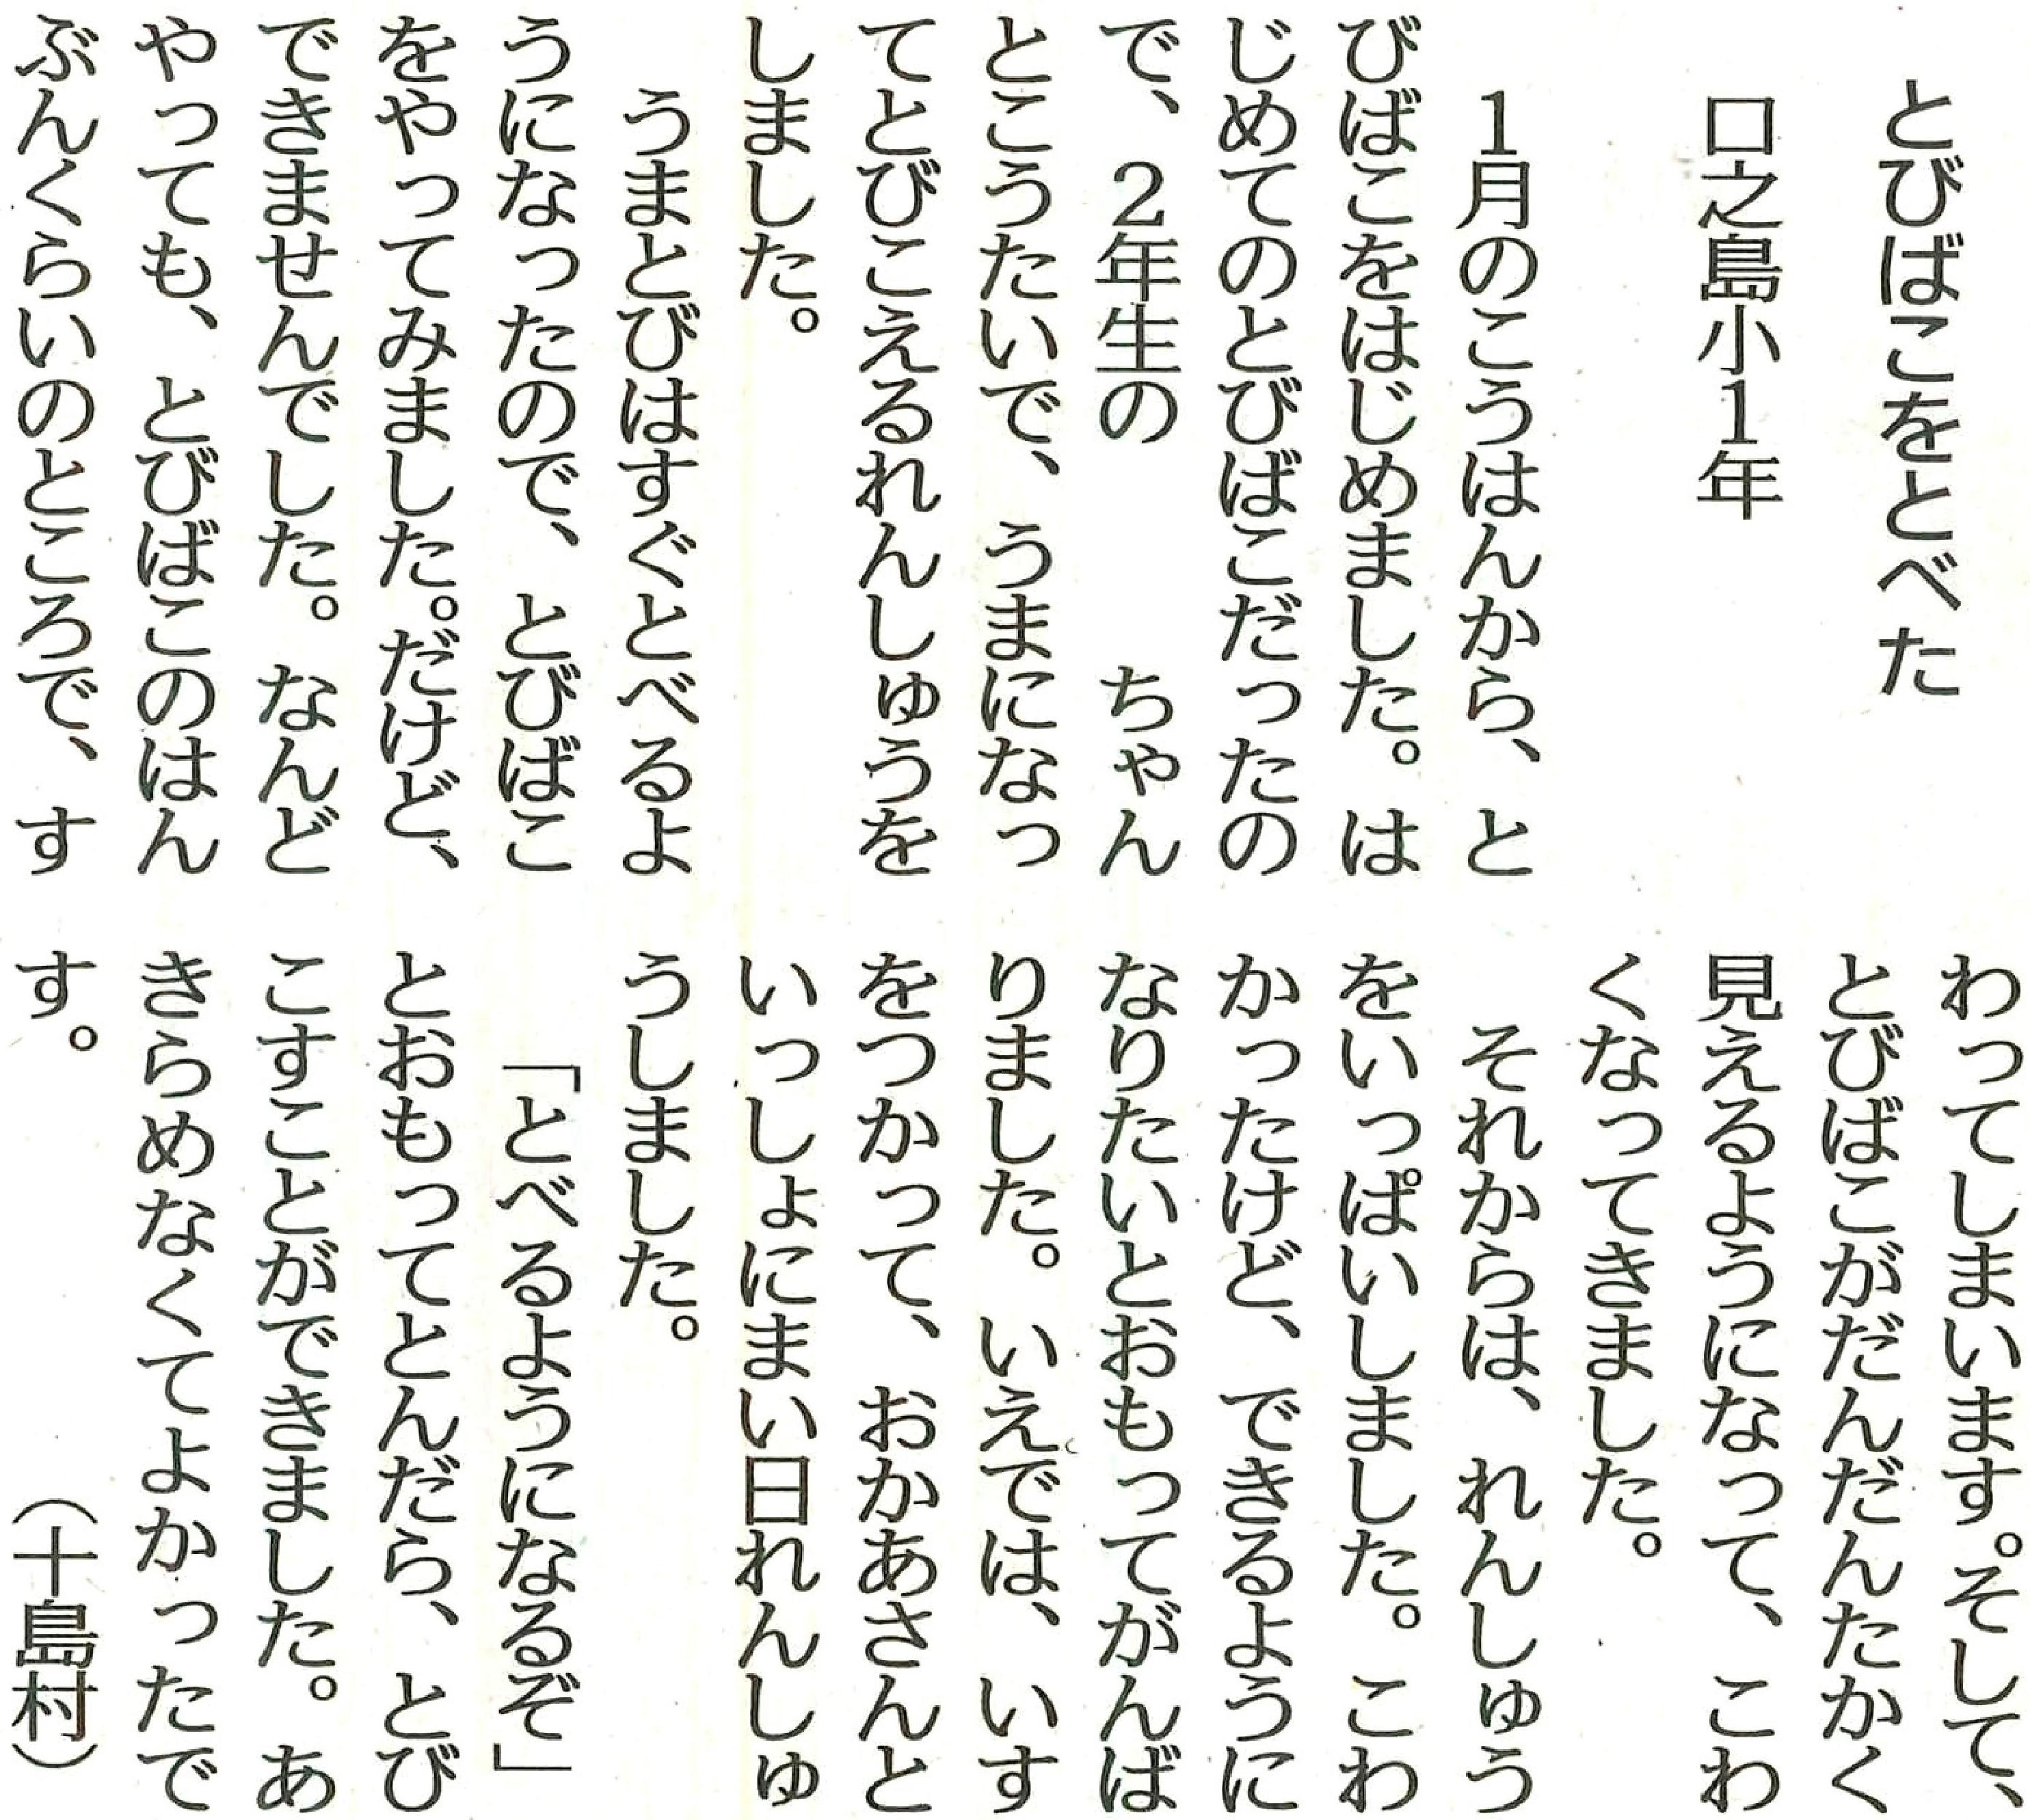 とびばこをとべた
口之島小1年
1月のこうはんから、と
びばこをはじめました。は
じめてのとびばこだったの
で、2年生の　　　ちゃん
とこうたいで、うまになっ
てとびこえるれんしゅうを
しました。
うまとびはすぐとべるよ
うになったので、とびばこ
をやってみました。だけど、
できませんでした。なんど
やっても、とびばこのはん
ぶんくらいのところで、す
わってしまいます。そして、
とびばこがだんだんたかく
見えるようになって、こわ
くなってきました。
それからは、れんしゅう
をいっぱいしました。こわ
かったけど、できるように
なりたいとおもってがんば
りました。いえでは、いす
をつかって、おかあさんと
いっしょにまい日れんしゅ
うしました。
「とべるようになるぞ」
とおもってとんだら、とび
こすことができました。あ
きらめなくてよかったで
す。
（十島村）